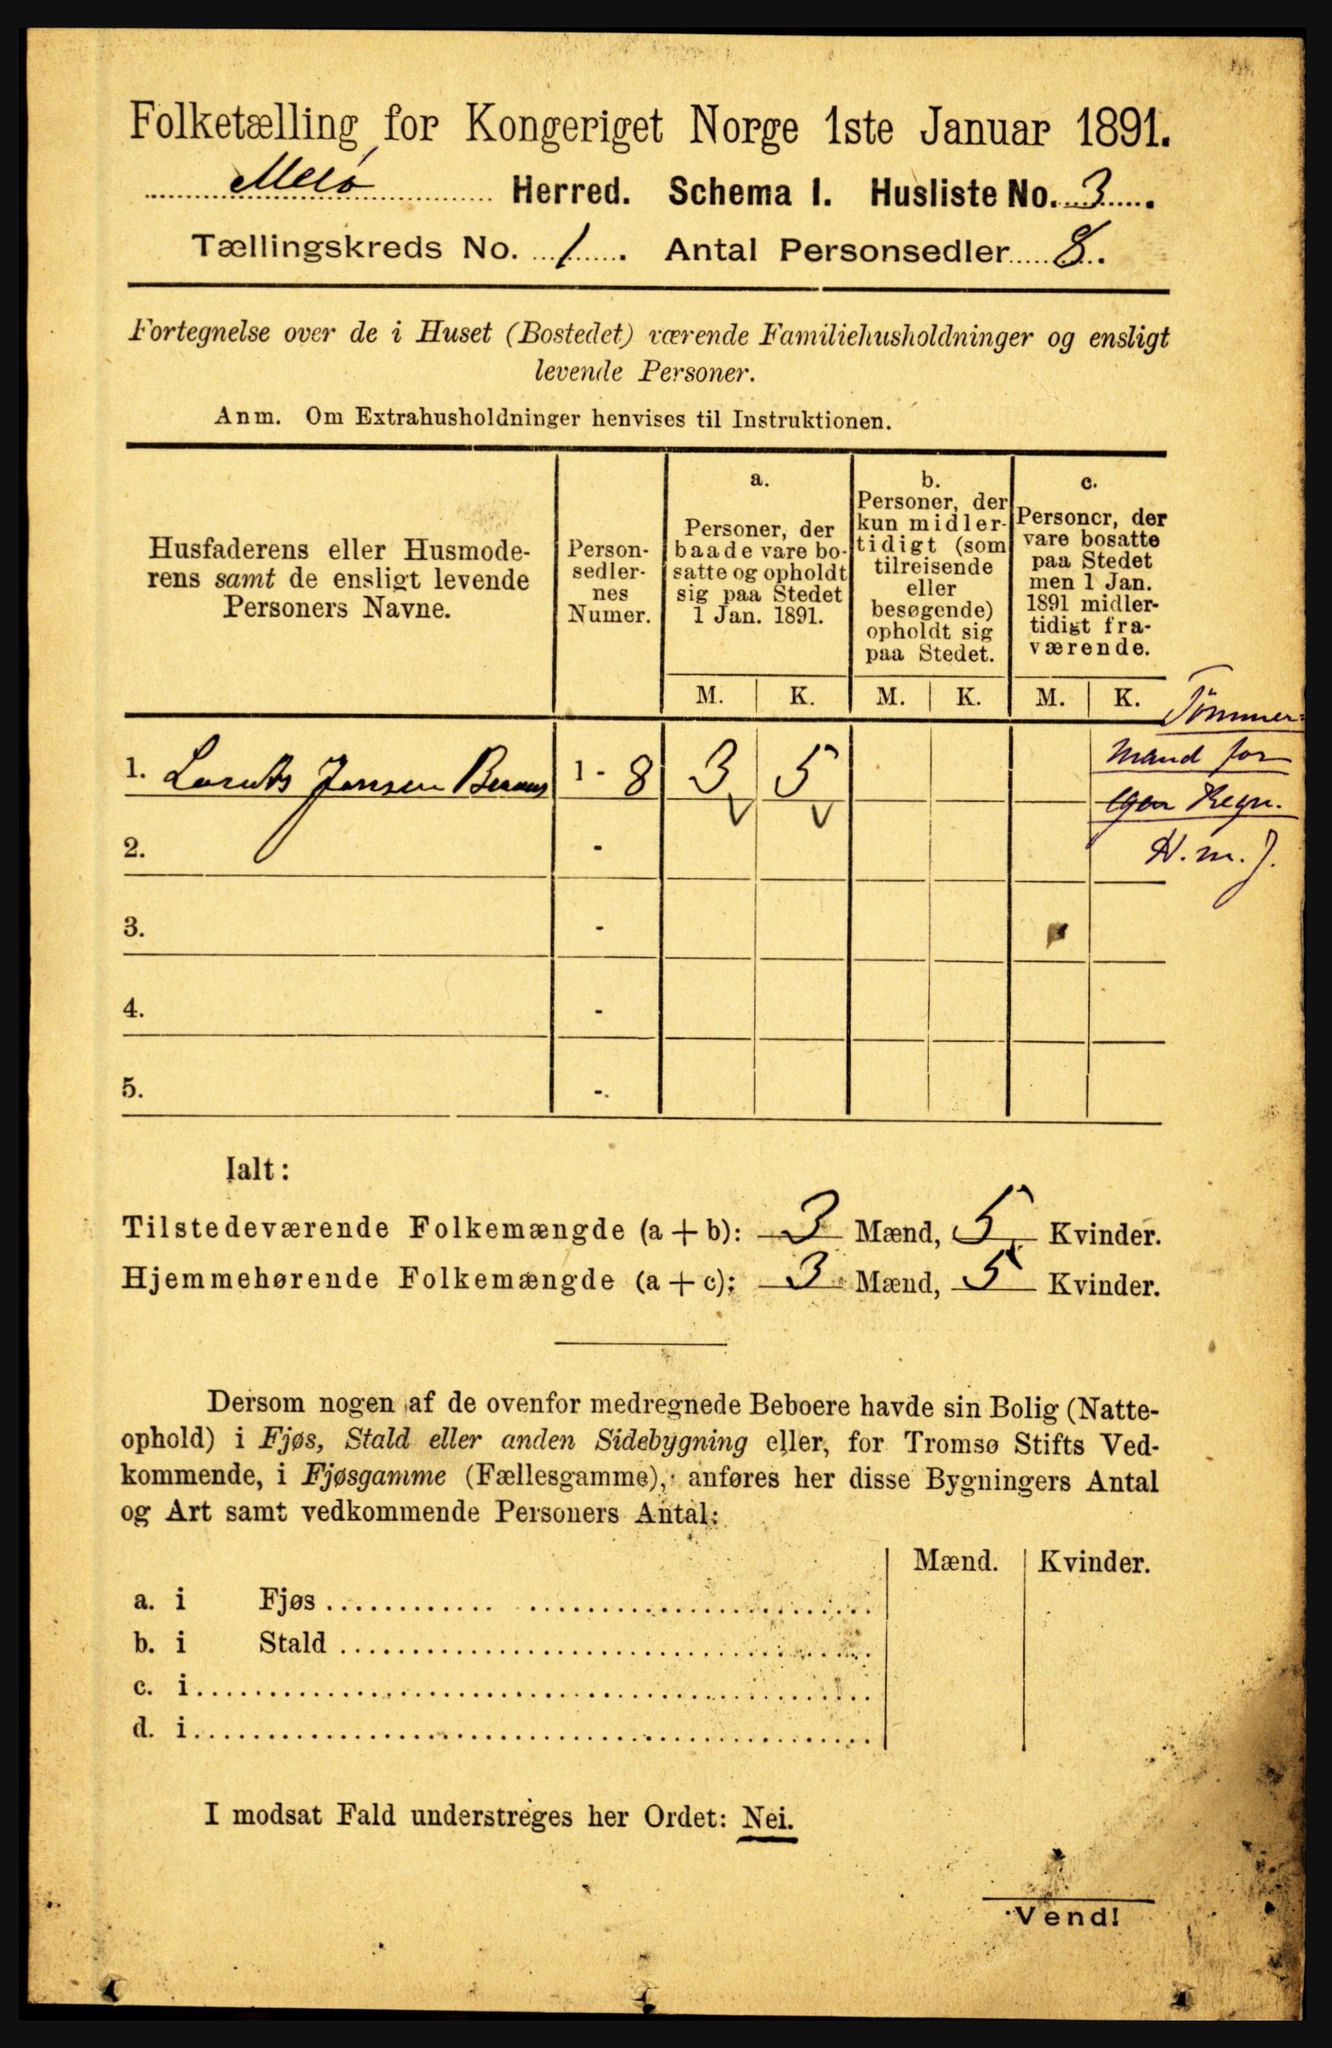 Folketælling for Kongeriget Norge 1ste Januar 1891.
Melø Herred. Schema I. Husliste No. 3.
Tællingskreds No. 1. Antal Personsedler 8.
Fortegnelse over de i Huset (Bostedet) værende Familiehusholdninger og ensligt
levende Personer.
Anm. Om Extrahusholdninger henvises til Instruktionen.
Husfaderens eller Husmode-
rens samt de ensligt levende
Personers Navne.
Person-
sedler-
nes
Numer.
a.
Personer, der
baade vare bo-
satte og opholdt
sig paa Stedet
1 Jan. 1891.
b.
Personer, der
kun midler-
tidigt (som
tilreisende
eller
besøgende)
opholdt sig
paa Stedet.
c.
Personer, der
vare bosatte
paa Stedet
men 1 Jan.
1891 midler-
tidigt fra-
værende.
M. K. M. K. M. K.
Tömmer-
mand for
egen Regn.
H. m. J.
1. Jensen 1 - 8 3 5
2. -
3. -
4. -
5. -
Ialt:
Tilstedeværende Folkemængde (a + b): 3 Mænd, 5 Kvinder.
Hjemmehørende Folkemængde (a + c): 3 Mænd, 5 Kvinder.
Dersom nogen af de ovenfor medregnede Beboere havde sin Bolig (Natte-
ophold) i Fjøs, Stald eller anden Sidebygning eller, for Tromsø Stifts Ved-
kommende, i Fjøsgamme (Fællesgamme), anføres her disse Bygningers Antal
og Art samt vedkommende Personers Antal:
Mænd. Kvinder.
a. i Fjøs
b. i Stald
c. i
d. i
I modsat Fald understreges her Ordet: Nei.
Vend!